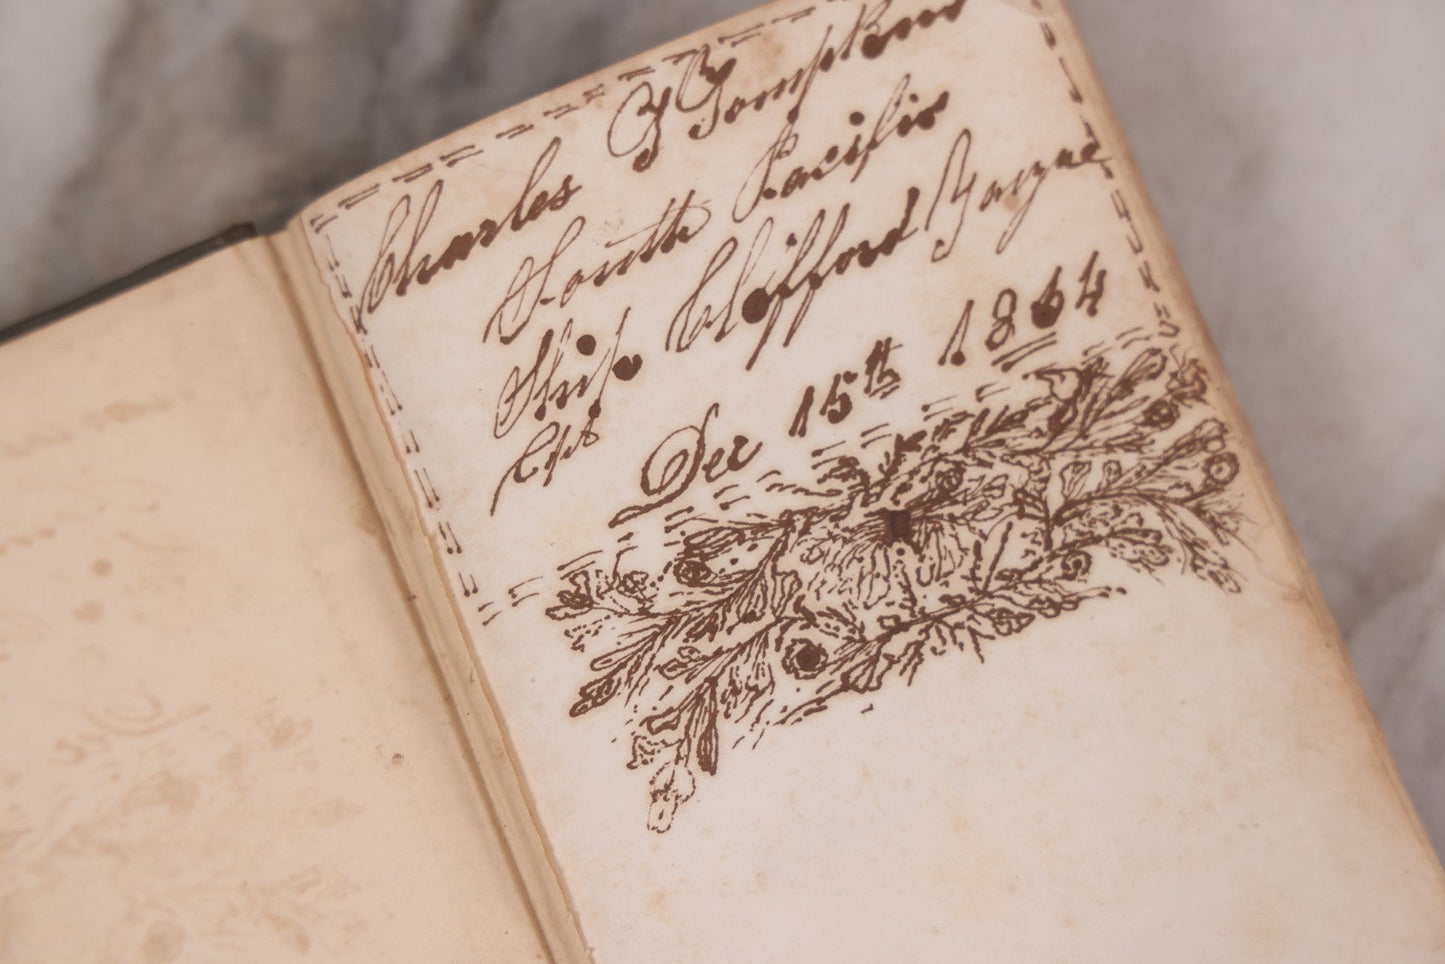 Charles Tompkins
South Pacific
Ship Clifford Wayne
Dec 15th 1864